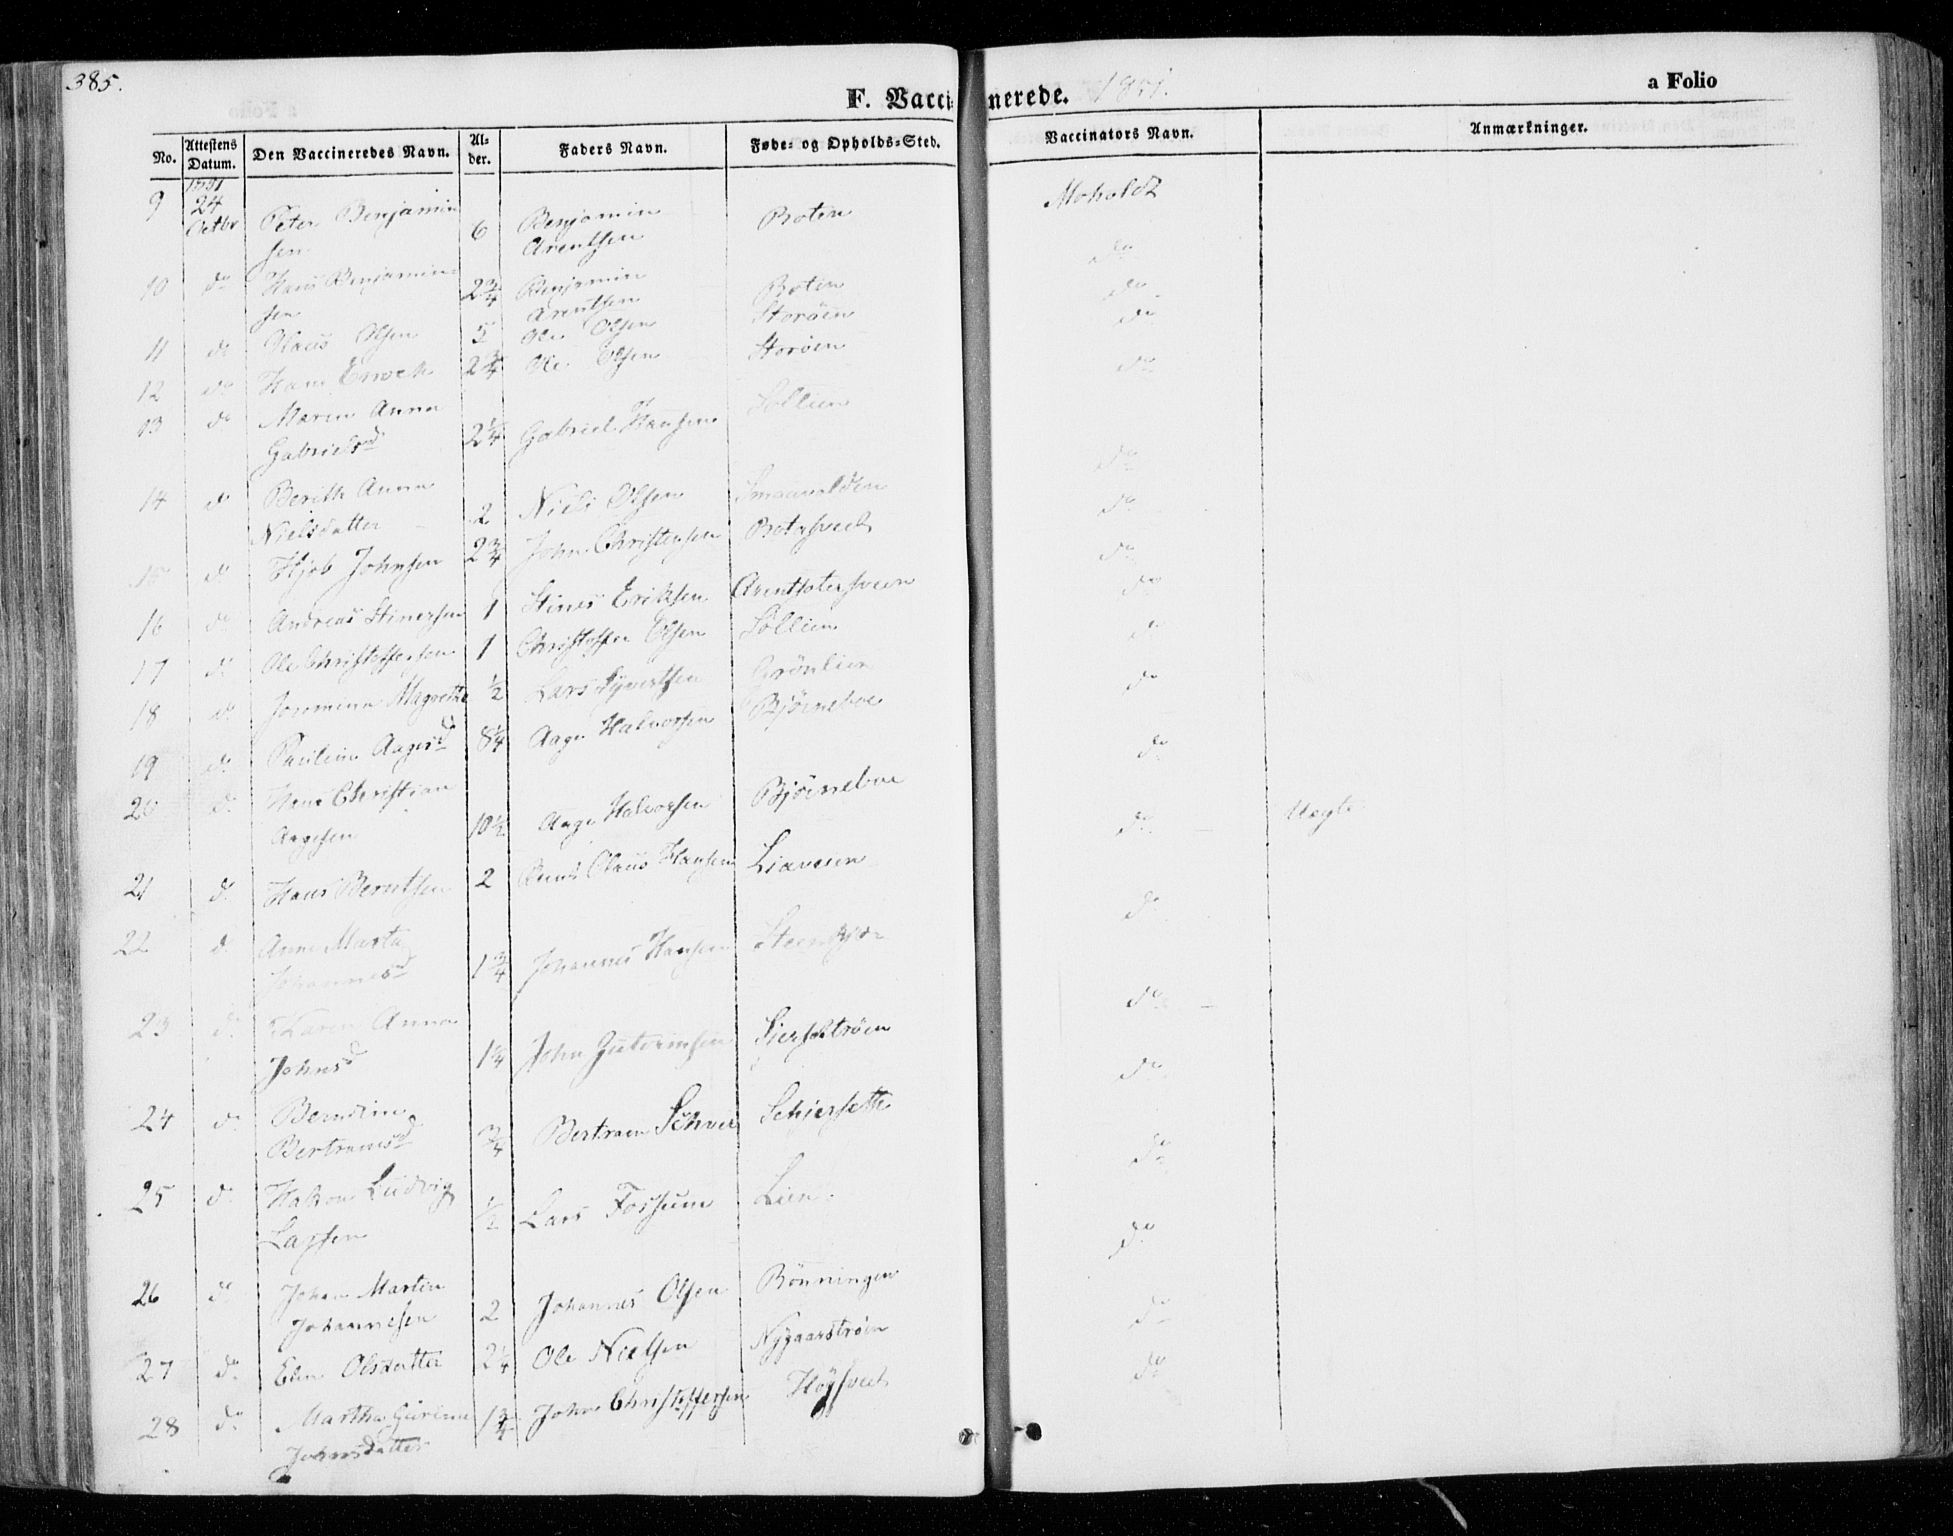 385.
F. Vaccinerede. 1851.
a Folio
No. Attestens Datum. Den Vaccineredes Navn. Al-der. Faders Navn. Føde- og Opholds-Sted. Vaccinators Navn. Anmærkninger.
9 1851 24 Octbr Peter Benjamin 6 Benjamin Roten Moholdt
sen Arentsen
10 do Hans Benjamin 2 3/4 Benjamin Roten do
sen Arentsen
11 do Olaus Olsen 5 Ole Olsen Storøen do
12 do Hans Enoch 2 3/4 Ole Olsen Storøen do
13 do Maren Anna Sollien do
Gabrielsd 2 1/4 Gabriel Hansen
14 do Berith Anna do
Nielsdatter 2 Niels Olsen
15 do Johnsen 2 3/4 John Christensen do
16 do Andreas Stinersen 1 Stiner Eriksen do
17 do Ole Christoffersen 1 Christoffer Olsen Sollien do
18 do Magrethe 1/2 Lars Syvertsen Grønlien do
19 do Pauline Aagesd 8 1/4 Aage Halvorsen Bjørneboe do
20 do Hans Christian Bjørneboe do
Aagesen 10 1/2 Aage Halvorsen
21 do Hans Berntsen 2 Bernt Olaus Hansen Liaveien do
22 do Anne Marta do
Johannesd 1 3/4 Johannes Hansen
23 do Karen Anna do
Johnsd 1 3/4 John
24 do Berndtine do
Bertramsd 3/4 Bertram
25 do Hakon Ludvig Lien do
Larsen 1/2 Lars Fossum
26 do Johan Martin Rønningen do
Johannesen 2 Johannes Olsen
27 do Elen Olsdatter 2 1/4 Ole Nielsen Nygaardstrøen do
28 do Martha Gurine 1 3/4 John Christoffersen Høgsveet do
Johnsdatter